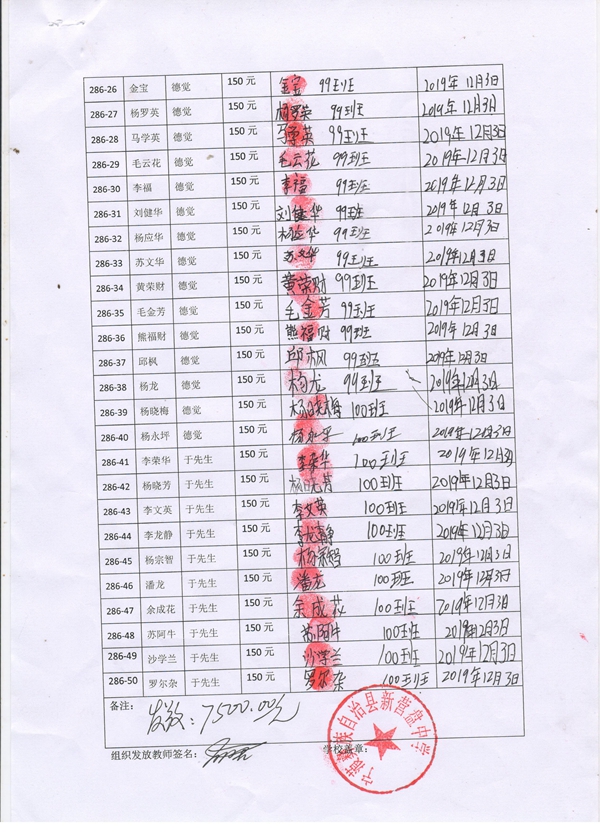 286-26 金宝 德觉 150 元 金宝 99班 2019年12月3日
286-27 杨罗英 德觉 150 元 杨罗英 99班 2019年12月3日
286-28 马学英 德觉 150 元 马学英 99班 2019年12月3日
286-29 毛云花 德觉 150 元 毛云花 99班 2019年12月3日
286-30 李福 德觉 150 元 李福 99班 2019年12月3日
286-31 刘健华 德觉 150 元 刘健华 99班 2019年12月3日
286-32 杨应华 德觉 150 元 杨应华 99班 2019年12月3日
286-33 苏文华 德觉 150 元 苏文华 99班 2019年12月3日
286-34 黄荣财 德觉 150 元 黄荣财 99班 2019年12月3日
286-35 毛金芳 德觉 150 元 毛金芳 99班 2019年12月3日
286-36 熊福财 德觉 150 元 熊福财 99班 2019年12月3日
286-37 邱枫 德觉 150 元 邱枫 99班 2019年12月3日
286-38 杨龙 德觉 150 元 杨龙 99班 2019年12月3日
286-39 杨晓梅 德觉 150 元 杨晓梅 100班 2019年12月3日
286-40 杨永坪 德觉 150 元 杨永平 100班 2019年12月3日
286-41 李荣华 于先生 150 元 李荣华 100班 2019年12月3日
286-42 杨晓芳 于先生 150 元 杨晓芳 100班 2019年12月3日
286-43 李文英 于先生 150 元 李文英 100班 2019年12月3日
286-44 李龙静 于先生 150 元 李龙静 100班 2019年12月3日
286-45 杨宗智 于先生 150 元 杨宗智 100班 2019年12月3日
286-46 潘龙 于先生 150 元 潘龙 100班 2019年12月3日
286-47 余成花 于先生 150 元 余成花 100班 2019年12月3日
286-48 苏阿牛 于先生 150 元 苏阿牛 100班 2019年12月3日
286-49 沙学兰 于先生 150 元 沙学兰 100班 2019年12月3日
286-50 罗尔杂 于先生 150 元 罗尔杂 100班 2019年12月3日
备注: 发放:7500.00元
组织发放教师签名: 学校盖章:
宁蒗彝族自治县新营盘中学